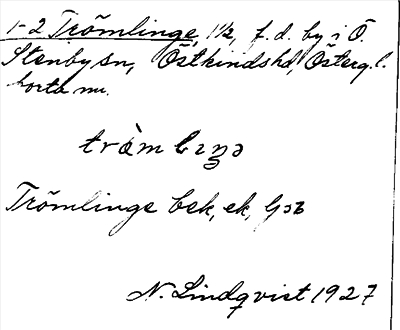 1-2 Trömlinge, 1 1/2, f.d. by i Ö.
Stenby sn, Östkinds hd, Österg. l.
borta nu.
Trömlinge bek, ek,
N. Lindqvist 1927